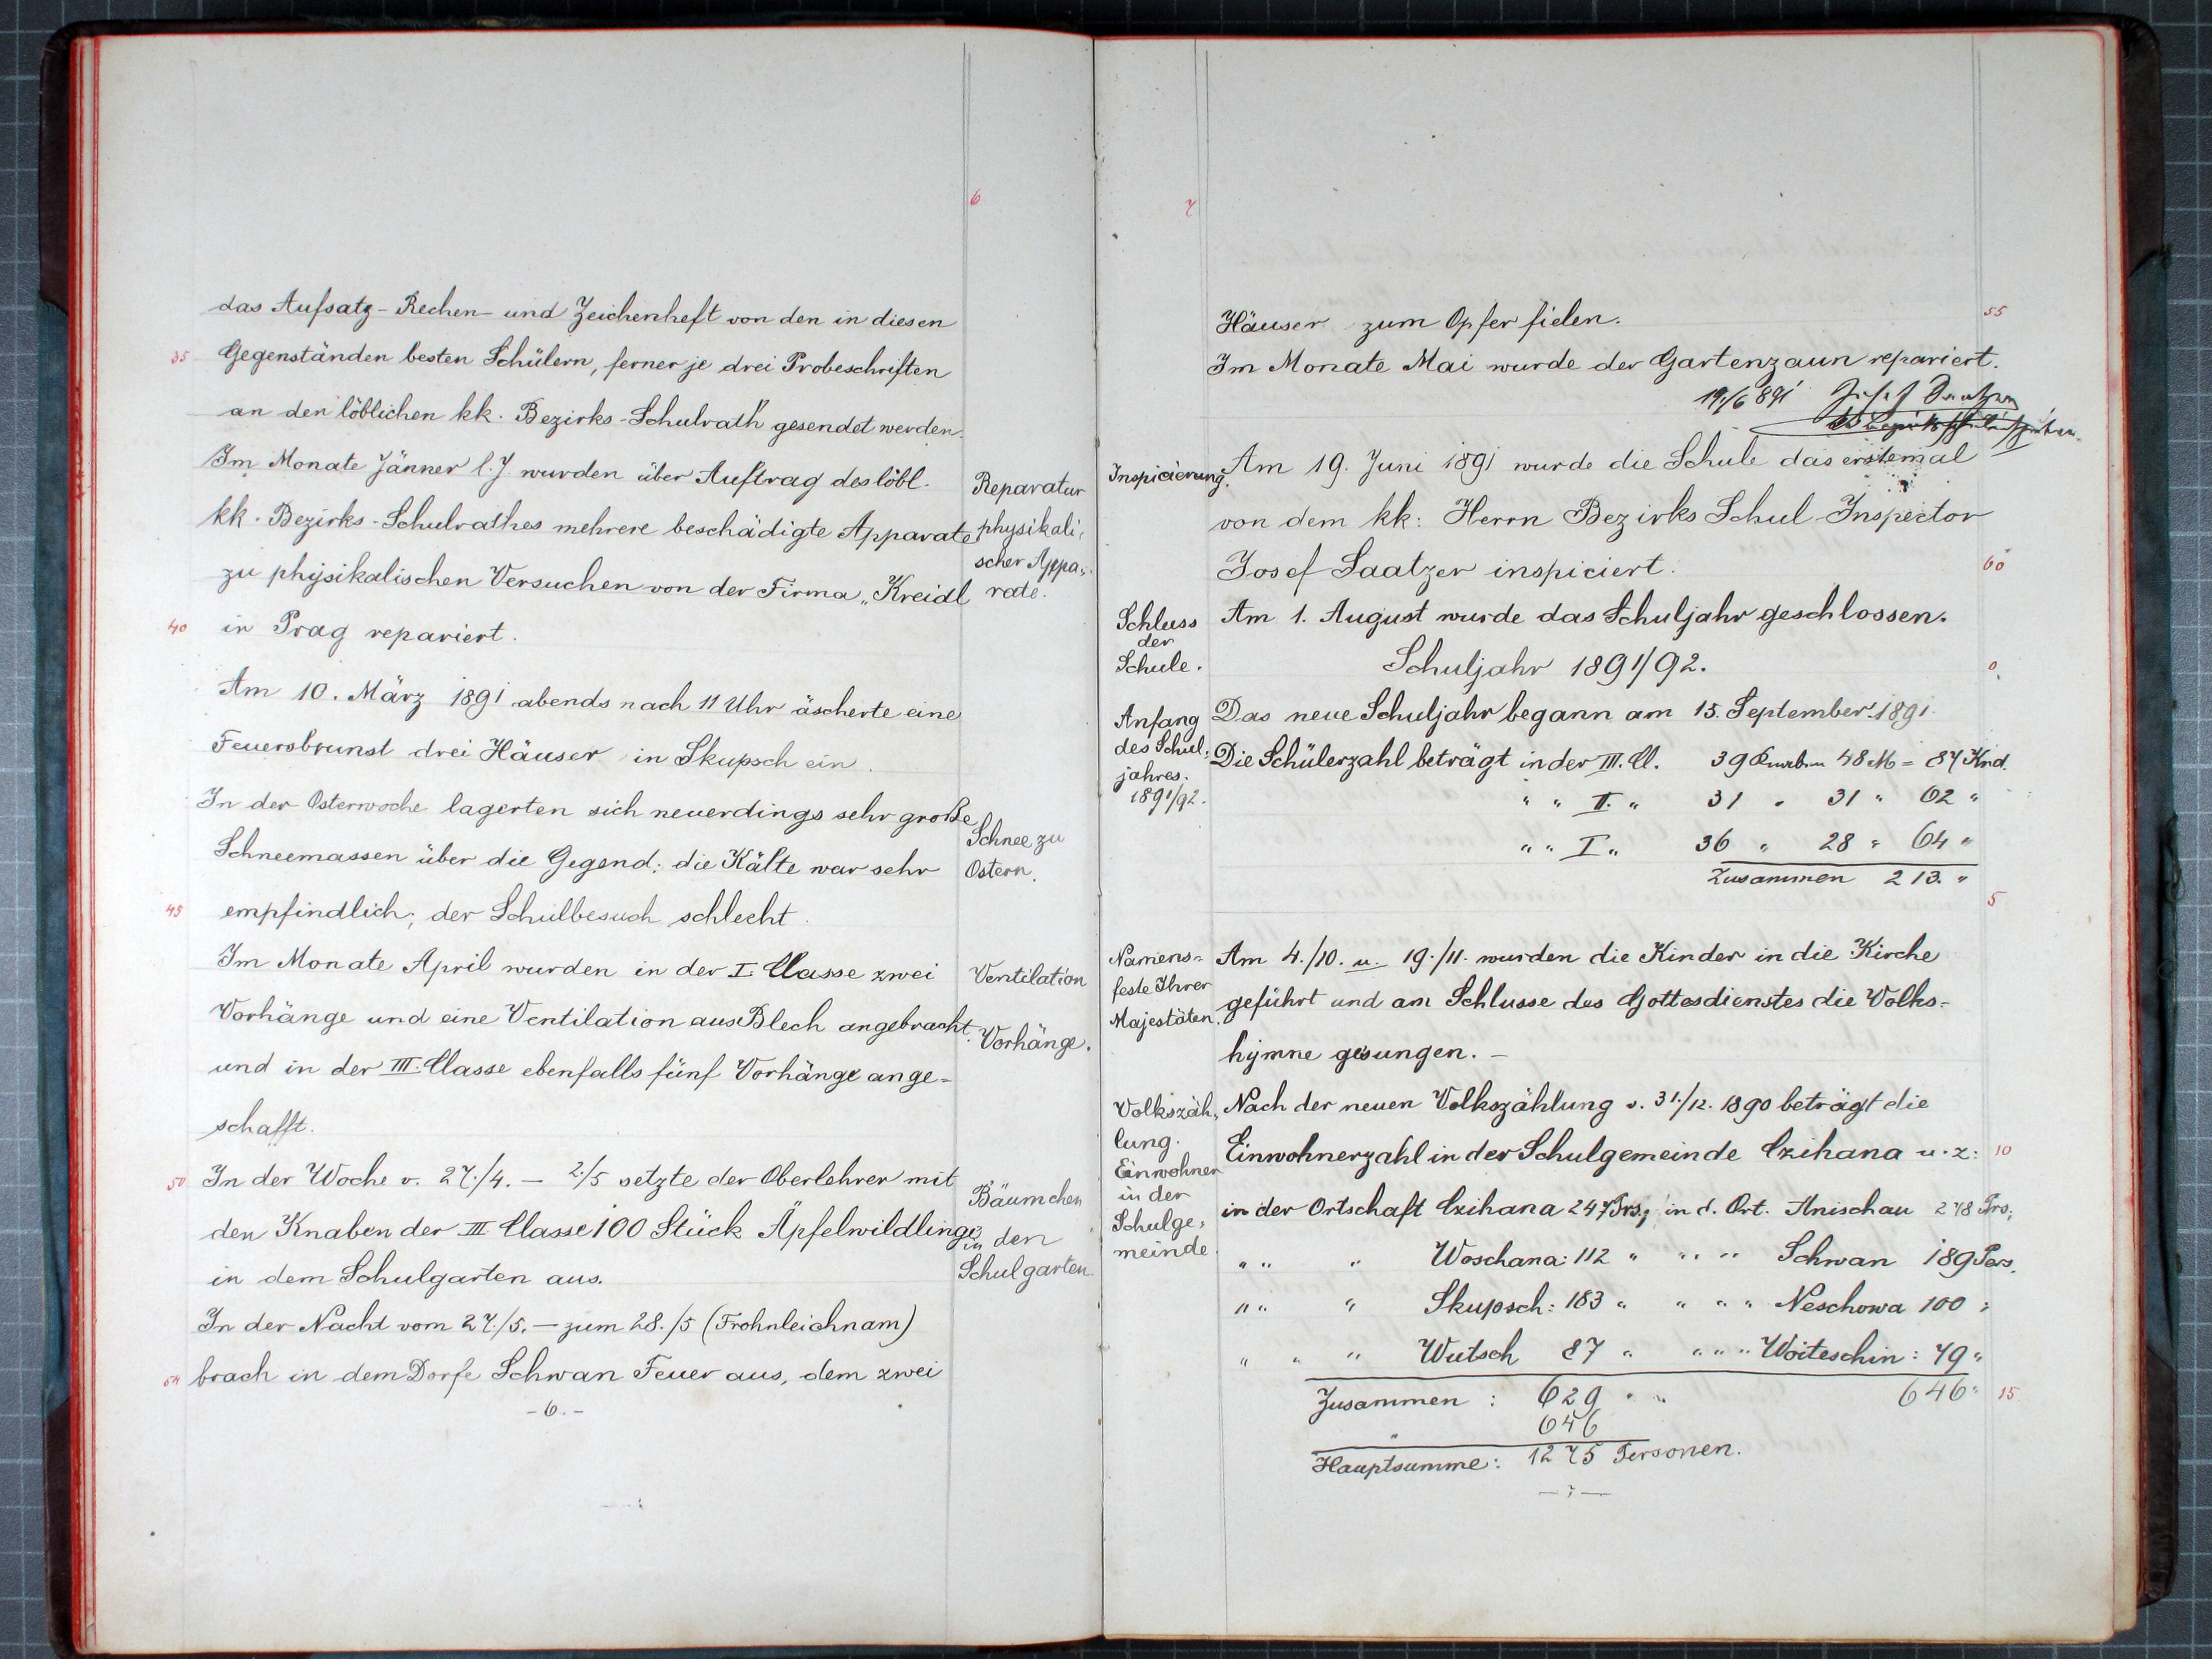 6
das Aufsatz- Rechen- und Zeichenheft von den in diesen
35 Gegenständen besten Schülern, ferner je drei Probeschriften
an den löblichen kk. Bezirks-Schulrath gesendet werden.
Im Monate Jänner l. J. wurden über Auftrag des löbl.
kk. Bezirks-Schulrathes mehrere beschädigte Apparate
zu physikalischen Versuchen von der Firma „Kreidl
40 in Prag repariert.
Reparatur
physikali-
scher Appa-
rate.
Am 10. März 1891 abends nach 11 Uhr äscherte eine
Feuersbrunst drei Häuser in Skupsch ein.
In der Osterwoche lagerten sich neuerdings sehr große
Schneemassen über die Gegend; die Kälte war sehr
45 empfindlich; der Schulbesuch schlecht.
Schnee zu
Ostern.
Im Monate April wurden in der I. Classe zwei
Vorhänge und eine Ventilation aus Blech angebracht.
und in der III. Classe ebenfalls fünf Vorhänge ange-
schafft.
Ventilation
Vorhänge.
50 In der Woche v. 27./4. – 2./5 setzte der Oberlehrer mit
den Knaben der III Classe 100 Stück Äpfelwildlinge
in dem Schulgarten aus.
Bäumchen
in den
Schulgarten.
In der Nacht vom 27./5. – zum 28./5 (Frohnleichnam)
54 brach in dem Dorfe Schwan Feuer aus, dem zwei
- 6. -
7
Häuser zum Opfer fielen. 55
Im Monate Mai wurde der Gartenzaun repariert.
19/6 891 Josef Saatzer
Inspicierung.
Am 19. Juni 1891 wurde die Schule das erstemal
von dem kk: Herrn Bezirks Schul-Inspector
Josef Saatzer inspiciert. 60
Schluss
der
Schule.
Am 1. August wurde das Schuljahr geschlossen.
Schuljahr 1891/92. 0
Anfang
des Schul-
jahres.
1891/92.
Das neue Schuljahr begann am 15. September 1891
Die Schülerzahl beträgt in der III. Cl. 39 Knaben 48 M = 87 Knd.
" " II. " 31 " 31 " 62 "
" " I " 36 " 28 " 64 "
Zusammen 213. "
5
Namens-
feste Ihrer
Majestäten.
Am 4./10. u. 19./11. wurden die Kinder in die Kirche
geführt und am Schlusse des Gottesdienstes die Volks-
hymne gesungen. –
Volkszäh-
lung.
Einwohner
in der
Schulge-
meinde.
Nach der neuen Volkszählung v. 31./12. 1890 beträgt die
Einwohnerzahl in der Schulgemeinde Czihana u. z: 10
in der Ortschaft Czihana 247 Prs., in d. Ort. Anischau 278 Prs,
" " " Woschana: 112 " " " " Schwan 189 Pers.
" " " Skupsch: 183 " " " " Neschowa 100 "
" " " Wutsch 87 " " " " Woiteschin: 79 "
Zusammen : 629 " " 646 " 15
" 646
Hauptsumme: 1275 Personen.
- 7 -